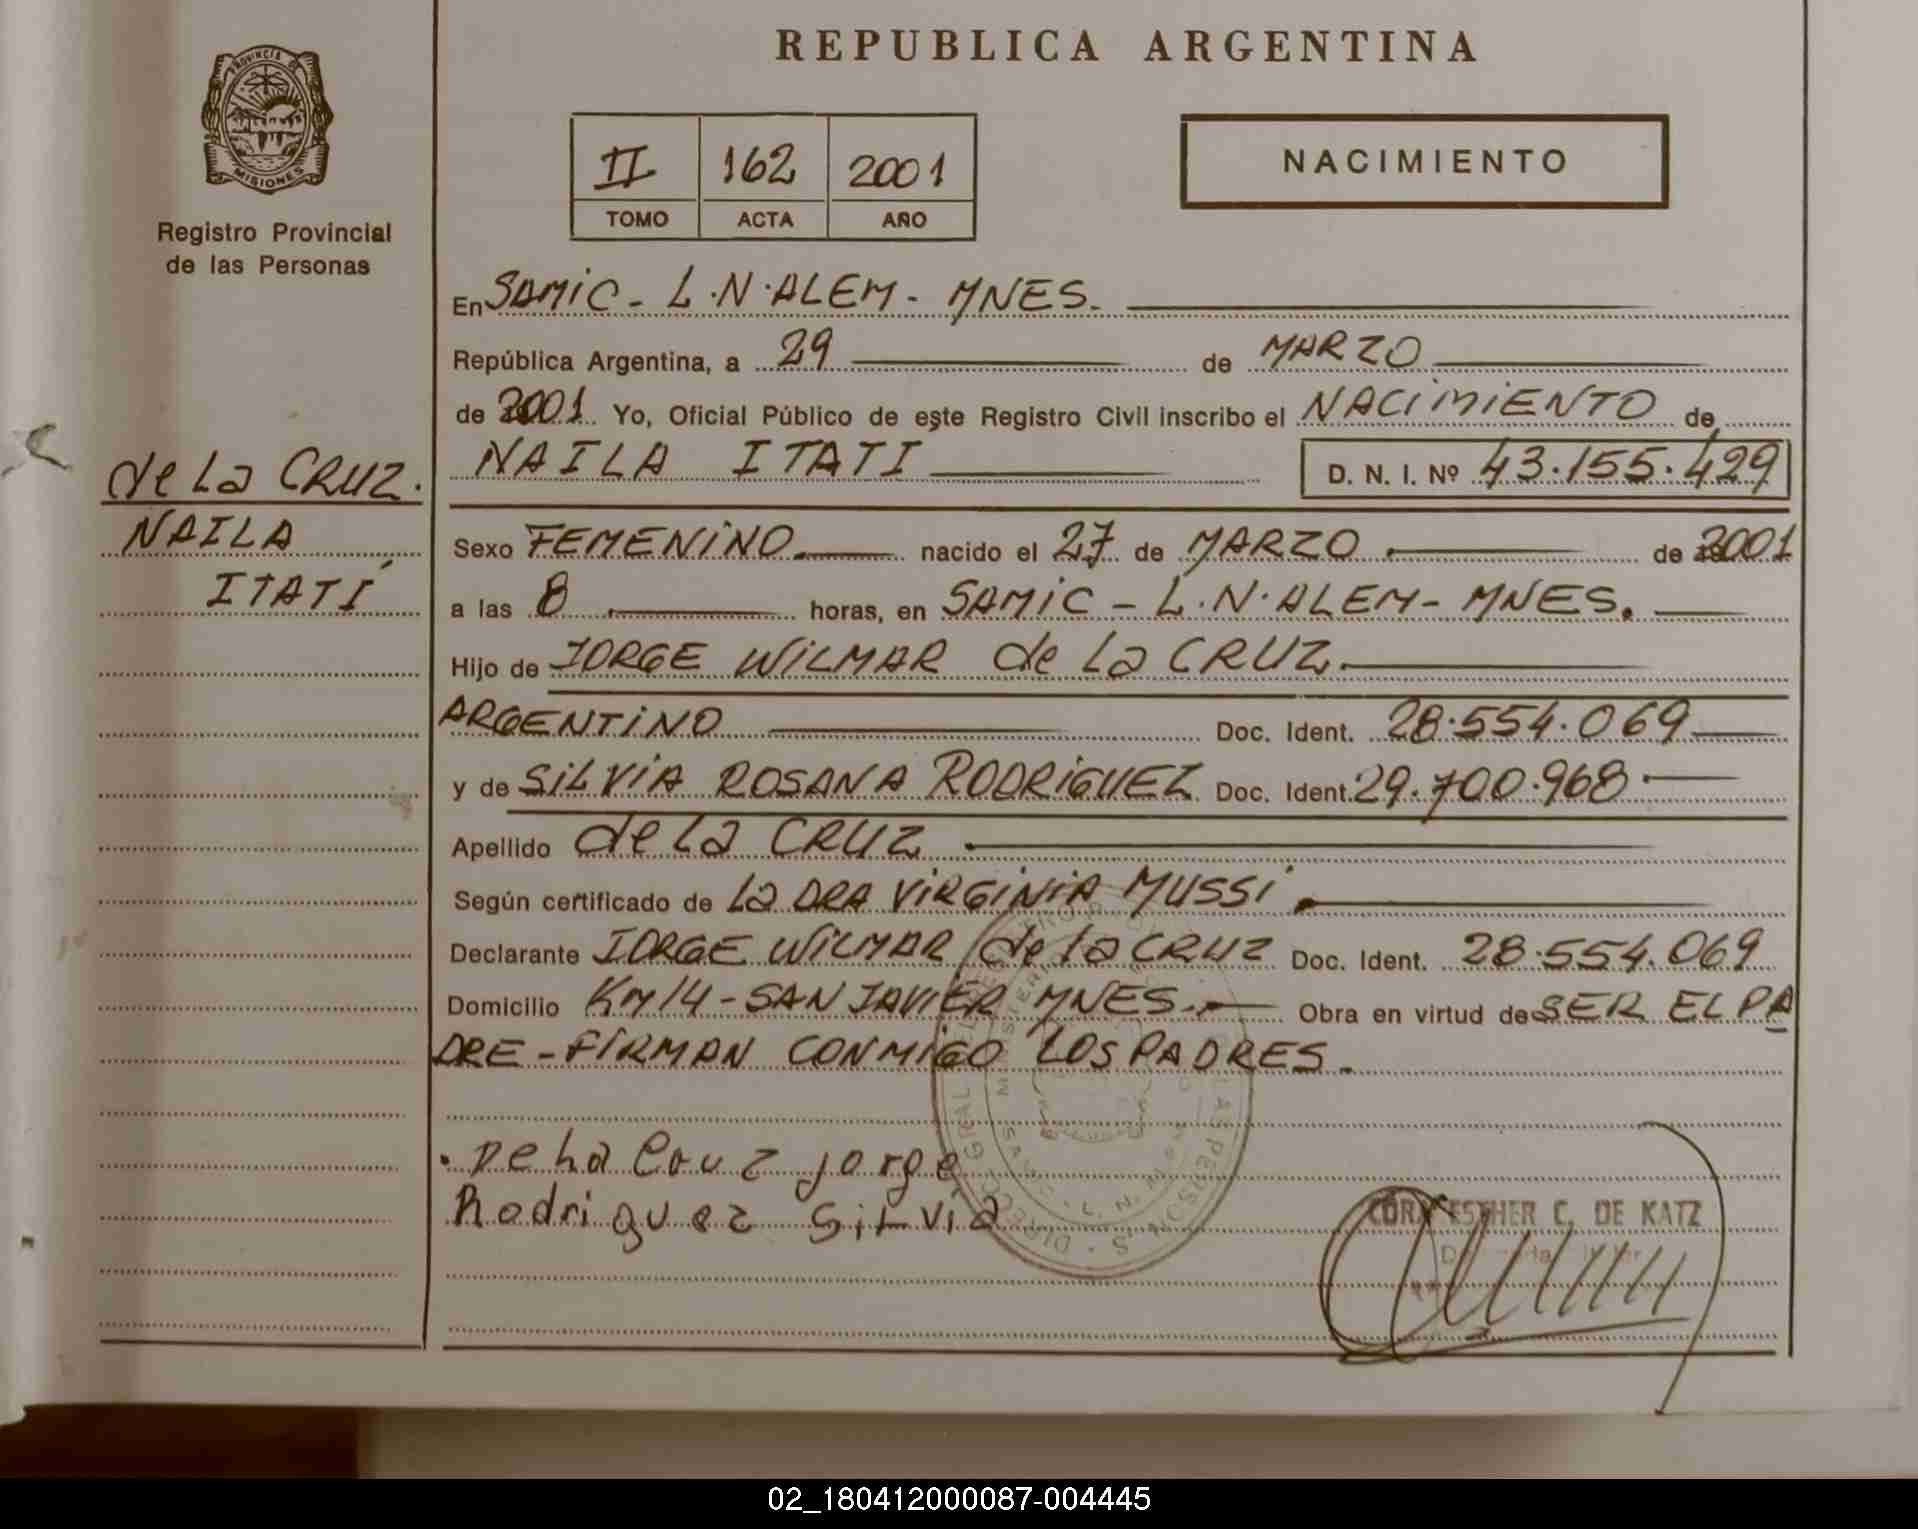 REPUBLICA ARGENTINA
PROVINCIA DE
MISIONES
Registro Provincial
de las Personas
II 162 2001
TOMO ACTA AÑO
NACIMIENTO
de La CRUZ.
NAILA
ITATÍ
En SAMIC - L.N.ALEM - MNES.
República Argentina, a 29 de MARZO
de 2001 Yo, Oficial Público de este Registro Civil inscribo el NACIMIENTO de
NAILA ITATI D. N. I. Nº 43.155.429
Sexo FEMENINO nacido el 27 de MARZO de 2001
a las 8 horas, en SAMIC - L.N.ALEM - MNES.
Hijo de JORGE WILMAR de La CRUZ
ARGENTINO Doc. Ident. 28.554.069
y de SILVIA ROSANA RODRIGUEZ Doc. Ident. 29.700.968
Apellido de La CRUZ
Según certificado de La DRA VIRGINIA MUSSI
Declarante JORGE WILMAR de La CRUZ Doc. Ident. 28.554.069
Domicilio Km 14 - SAN JAVIER MNES. Obra en virtud de SER EL PA
DRE - FIRMAN CONMIGO LOS PADRES.
De La Cruz Jorge
Rodriguez Silvia
CORA ESTHER C. DE KATZ
02_180412000087-004445